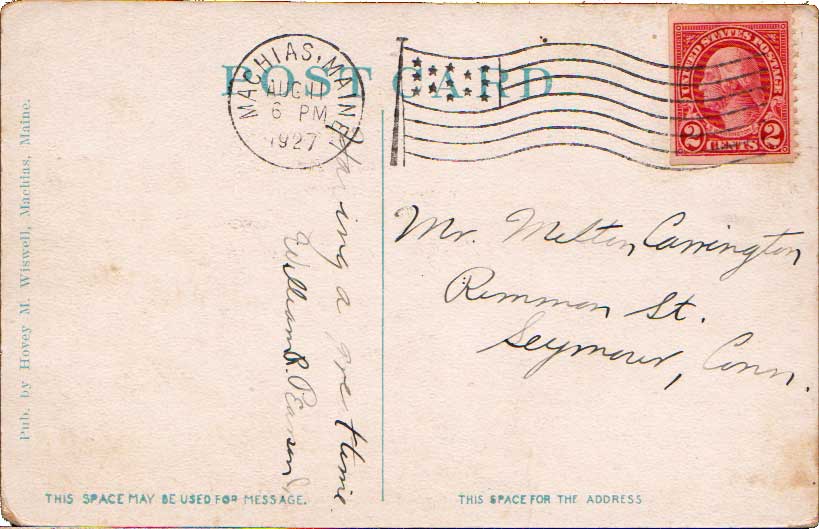 POST CARD
MACHIAS, MAINE
AUG 11
6 PM
1927
UNITED STATES POSTAGE
2 CENTS 2
Having a time
William R. Pearson
Mr. Melten Carrington
Rimmon St.
Seymour, Conn.
Pub. by Hovey M. Wiswell, Machias, Maine.
THIS SPACE MAY BE USED FOR MESSAGE.
THIS SPACE FOR THE ADDRESS